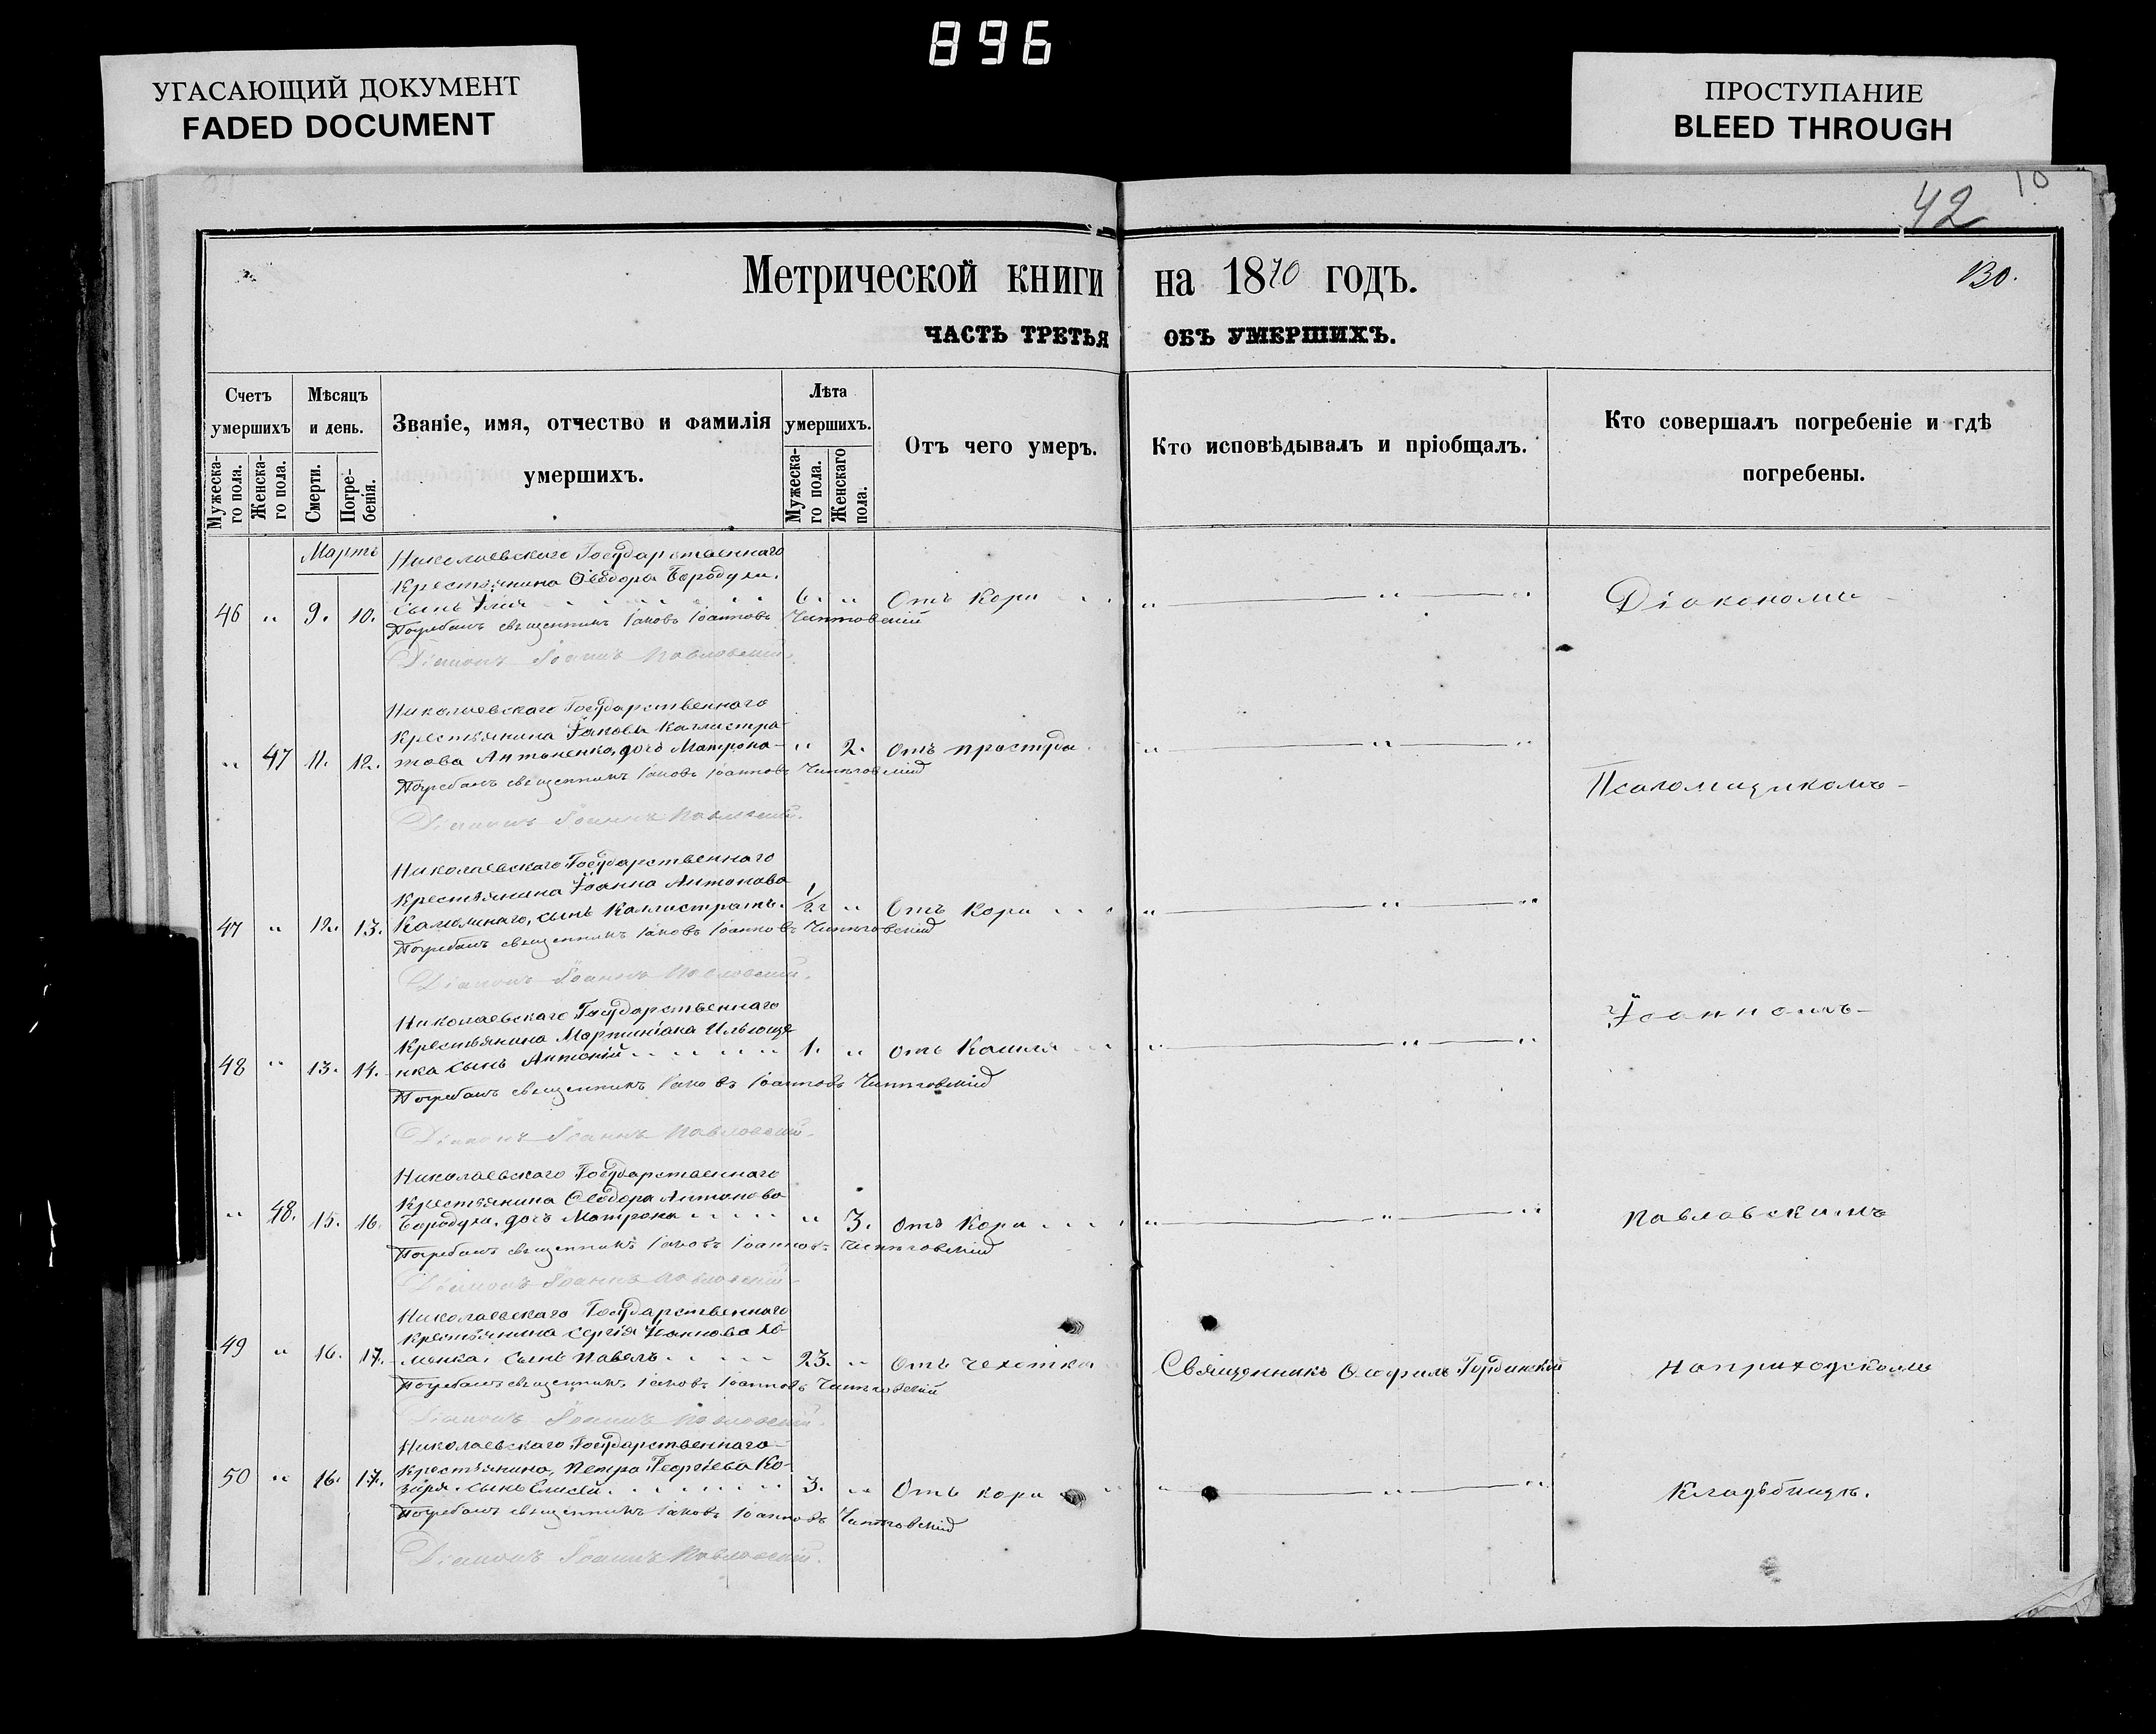 896
УГАСАЮЩИЙ ДОКУМЕНТ
FADED DOCUMENT
ПРОСТУПАНИЕ
BLEED THROUGH
42
10
130.
Метрической книги на 1870 годъ.
ЧАСТЬ ТРЕТЬЯ ОБЪ УМЕРШИХЪ.
Счетъ умершихъ
Мужеска-го пола.
Женска-го пола.
Мѣсяцъ и день.
Смерти.
Погре-бенія.
Званіе, имя, отчество и фамилія умершихъ.
Лѣта умершихъ.
Мужеска-го пола.
Женскаго пола.
Отъ чего умеръ.
Кто исповѣдывалъ и пріобщалъ.
Кто совершалъ погребеніе и гдѣ погребены.
Мартъ
Николаевскаго Государственнаго
Крестьянина Ѳеодора Бородули.
46 " 9. 10. сынъ Илія 6. " Отъ кори " " "
Погребалъ священникъ Іаковъ Іоанновъ
Діаконъ Іоаннъ Павловскій.
Діакономъ
Николаевскаго Государственнаго
Крестьянина Іакова Каллистра-
" 47 11. 12. това Антоненко, дочь Матрона " 2. Отъ простуды " " "
Погребалъ священникъ Іаковъ Іоанновъ
Діаконъ Іоаннъ Павловскій.
Псаломщикомъ
Николаевскаго Государственнаго
Крестьянина Іоанна Антонова
47 " 12. 13. сынъ Каллистратъ. 1/2 " Отъ кори " " "
Погребалъ священникъ Іаковъ Іоанновъ
Діаконъ Іоаннъ Павловскій.
Николаевскаго Государственнаго
Іоанномъ
Крестьянина Мартиніана Ильюще
48 " 13. 14. нка сынъ Антоній 1. " отъ Кашля " " "
Погребалъ священникъ Іаковъ Іоанновъ
Діаконъ Іоаннъ Павловскій.
Николаевскаго Государственнаго
Крестьянина Ѳеодора Антонова
" 48. 15. 16. Бородули. дочь Матрона " 3. отъ кори " " "
Павловскимъ
Погребалъ священникъ Іаковъ Іоанновъ
Діаконъ Іоаннъ Павловскій.
Николаевскаго Государственнаго
Крестьянина Сергія Іоаннова
49 " 16. 17. менка. сынъ Павелъ 23. " Отъ чехотки Священникъ Ѳеофилъ
На приходскомъ
Погребалъ священникъ Іаковъ Іоанновъ
Діаконъ Іоаннъ Павловскій.
Николаевскаго Государственнаго
Крестьянина, Петра Георгіева Ко-
50 " 16. 17. зыря. сынъ Елисей. 3. " Отъ кори " " "
Кладбищѣ.
Погребалъ священникъ Іаковъ Іоанновъ
Діаконъ Іоаннъ Павловскій.